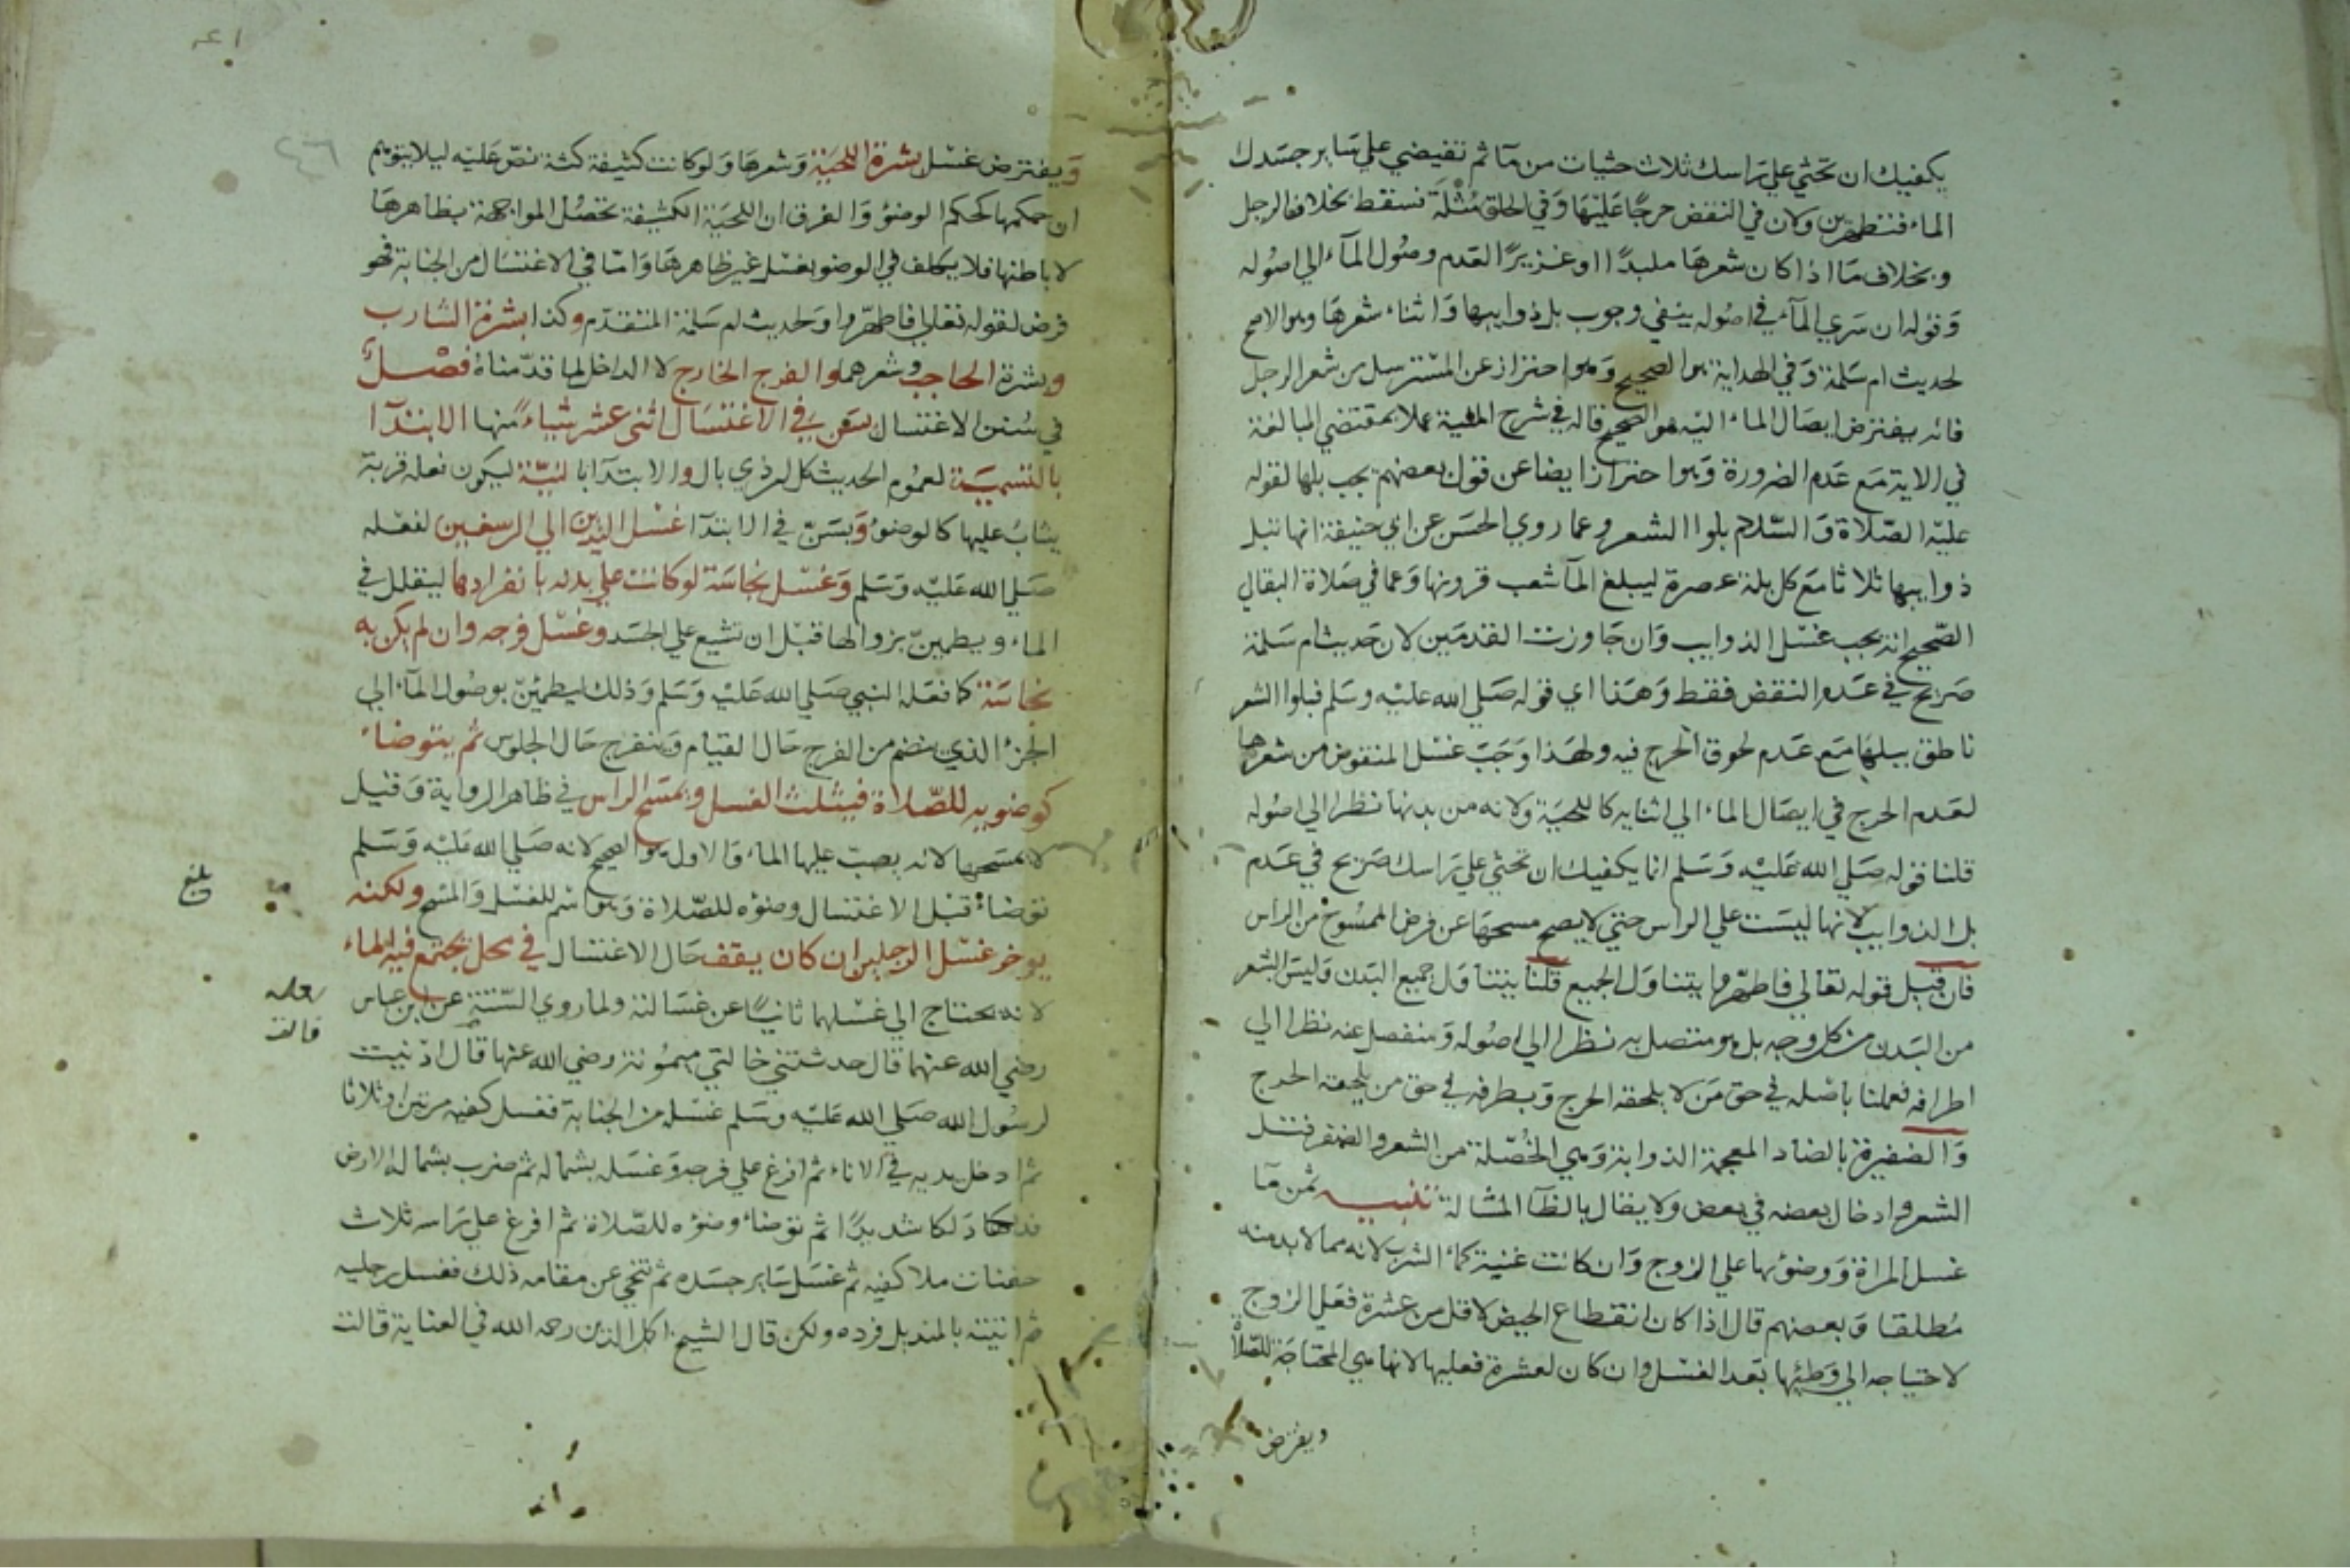 يكفيك ان تحثي علي راسك ثلاث حثيات من مآ ثم تفيضي علي سَاير جسَدك
الماء فتطهرين ولان في النقض حرجًا عَليهَا وَفي الحلق مُثلَة فسقط بخلاف الرجل
وبخلاف مَا اذا كان شعرهَا ملبدًا او غزيرًا لعَدم وصُول المآء الي اصُوله
وَقوله ان سَري المآء في اصُوله ينفي وجوب بل ذوايبها وَاثناء شعرهَا وهو الاصح
لحديث ام سَلمة وَفي الهداية هو الصحيح وَهو احتراز عن المسْترسل من شعر الرجل
فانه يفترض ايصَال الماء اليه هو الصحيح قاله في شرح المنية عملا بمقتضي المبالغة
في الاية مَع عَدم الضرورة وَهو احترازا يضا عن قول بعضهم يجب بلها لقوله
عليْه الصّلاة وَالسّلام بلوا الشعر وعما روي الحسَن عن ابي حنيفة انها تبل
ذوايبها ثلاثا مَع كل بلة عصرة ليبلغ المآ شعب قرونها وَعما في صَلاة البقالي
الصّحيح انه يجب غسْل الذوايب وَان جَاوزت القدمَين لان حَديث ام سَلمة
صَريح في عَدم النقض فقط وَهَذا اي قوله صَلي الله عليْه وسَلم فبلوا الشعر
ناطق ببلهَا مَع عَدم لحوق الحرج فيه ولهَذا وَجَبَ غسْل المنقوض من شعرها
لعَدم الحرج في ايصَال الماء الي اثنايه كاللحيَة ولانه من بدنها نظرا الي اصُوله
قلنا قوله صَلي الله عَليْه وَسَلم انما يكفيك ان تحثي علي رَاسك صَريح في عَدم
بل الذوايب لانها ليسَت علي الراس حتي لا يصح مسحهَا عن فرض الممسُوح من الراس
فان قيل قوله تعالي فاطهّروا يتناوَل الجميع قلنا يتناوَل جميع البَدن وَليسَ الشعر
من البَدن من كل وجه بل هو متصل به نظرا الي اصُوله وَمنفصل عنه نظرا الي
اطرافه فعملنا باصْله في حق مَن لا يلحقه الحرج وَبطرفه في حق من يلحقه الحرج
وَالضفيرة بالضاد المعجمة الذوابة وَهي الخُصْلة من الشعر والضفر فتل
الشعر وادخال بعضه في بعض ولا يقال بالظآ المشالة تنبيه ثمن مَآ
غسل المراة وَوضؤها علي الزوج وَان كانت غنية كماء الشرب لانه مما لا بد منه
مُطلقا وَبعضهم قال اذا كان انقطاع الحيض لاقل من عشرة فعَلي الزوج
لاحتياجه الي وَطئها بَعد الغسْل وان كان لعشرة فعليها لانها هي المحتاجَة للصّلاة
ويفترض
٤٦
وَيفترض غسْل بشرة اللحيَة وَشعرهَا وَلو كانت كثيفة كثة نصّ عَليْه ليلا يتوهم
ان حكمها كحكم الوضوُ وَالفرق ان اللحيَة الكثيفة تحصُل المواجهة بظاهرهَا
لا باطنها فلا يكلف في الوضو بغسْل غير ظاهرهَا وَامّا في الاغتسَال من الجنابة فهو
فرض لقوله تعالي فاطهّروا وَلحديث ام سَلمة المتقدّم وكذا بشرة الشارب
وبشرة الحاجب وشعرهما والفرج الخارج لا الداخل لما قدّمناهُ فصْلٌ
في سُنن الاغتسال يسَن في الاغتسَال اثنى عشر شياءً منها الابتدآ
بالتسميَة لعمُوم الحديث كل امر ذي بال والابتدَا بالنيّة ليكون فعله قربة
يثابُ عليها كالوضوُ وَيسَنّ في الابتدآ غسْل اليدين الي الرسغين لفعْله
صَلي الله عَليْه وَسَلم وَغسْل نجاسَة لو كانت علي بدنه بانفرادها ليتقلل في
الماء ويطمينّ بزوالها قبْل ان تشيع علي الجسَد وغسْل فرجه وان لم يكن به
نجاسَة كما فعَله النبي صَلي الله عَليْه وَسَلم وَذلك ليطمئنّ بوصُول المآء الي
الجزء الذي ينضم من الفرج حَال القيام وَينفرج حَال الجلوس ثم يتوضاء
كوضوءيه للصّلاة فيثلث الغسل ويمسَح الراس في ظاهر الرواية وَقيل
لا يمسَحها لانه يصبّ عليها الماء وَالاول هو الصحيح لانه صَلي الله عَليْه وَسَلم
توضاءَ قبْل الاغتسال وضؤه للصّلاة وَهو اسم للغسْل وَالمسْح ولكنه
بلغ
يوخر غسْل الرجلين ان كان يقف حَال الاغتسَال في محل يجتمع فيه الماء
لانه يحتاج الي غسْلهما ثانيًا عن غسَالته ولما روي الستة عن ابن عباس
رضي الله عنهما قال حدثتني خالتي ميمُونة رضي الله عنها قال ادْنيت
لرسُول الله صَلي الله عَليْه وسَلم غسْله من الجنابة فغسل كفيه مرتين او ثلاثا
ثم ادخل يديه في الاناء ثم افرغ علي فرجه وَغسَله بشماله ثم ضرب بشماله الارض
فدلكها دَلكا شديدًا ثم توضاءَ وضؤه للصّلاة ثم افرغ علي رَاسه ثلاث
حفنات ملا كفيه ثم غسَل سَاير جسَده ثم تنحي عن مقامه ذلك فغسل رجليه
ثم اتيته بالمنديل فرده ولكن قال الشيخ اكمل الدين رحمه الله في العناية قالت